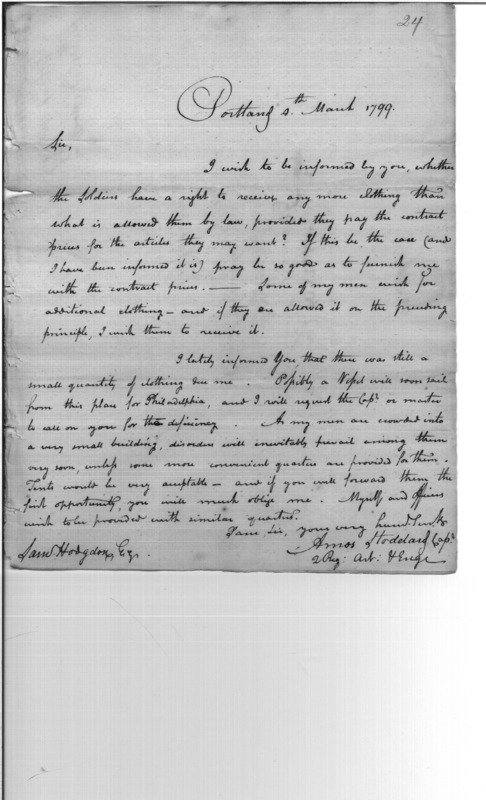 24
Portland 8th March 1799.
Sir,
I wish to be informed by you, whether
the Soldiers have a right to receive any more clothing than
what is allowed them by law, provided they pay the contract
prices for the articles they may want? If this be the case (and
I have been informed it is) pray be so good as to furnish me
with the contract prices. — Some of my men wish for
additional clothing — and if they are allowed it on the preceding
principle, I wish them to receive it.
I lately informed You that there was still a
small quantity of clothing due me. Possibly a Vessel will soon sail
from this place for Philadelphia, and I will request the Capt. or master
to call on you for the deficiency. As my men are crowded into
a very small building, disorders will inevitably prevail among them
very soon, unless some more convenient quarters are provided for them.
Tents would be very acceptable — and if you will forward them the
first opportunity, you will much oblige me. Myself and officers
wish to be provided with similar quarters.
I am, Sir, your very huml Servt
Amos Stoddard Capt.
Saml Hodgdon, Esqr.
2 Reg: Art: & Engr